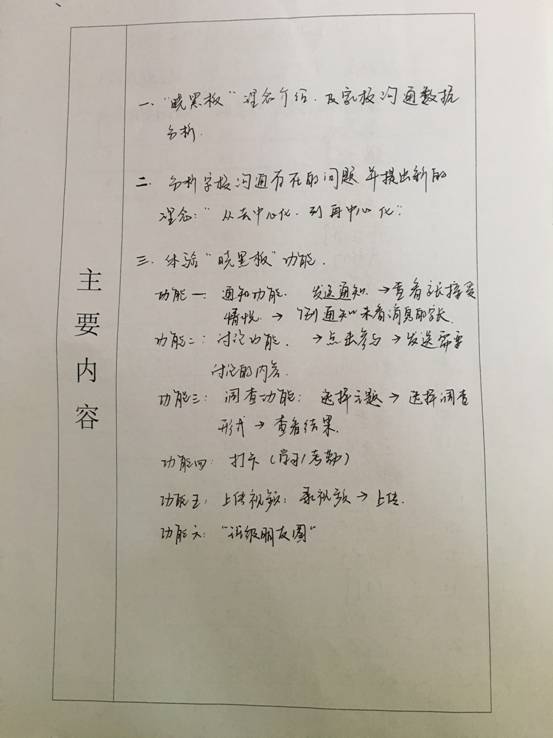 主要内容
一."晓黑板"理念介绍.及家校沟通数据
分析.
二.分析家校沟通存在的问题并提出新的
理念:"从去中心化.到再中心化".
三.体验"晓黑板"功能.
功能一:通知功能. 发送通知.→查看家长接受
情况.→ 通知未看消息的家长.
功能二:讨论功能. →点击参与→发送需要
讨论的内容.
功能三:调查功能:选择主题→选择调查
形式→查看结果.
功能四:打卡(学习/考勤)
功能五:上传视频:录视频→上传.
功能六:"班级朋友圈"